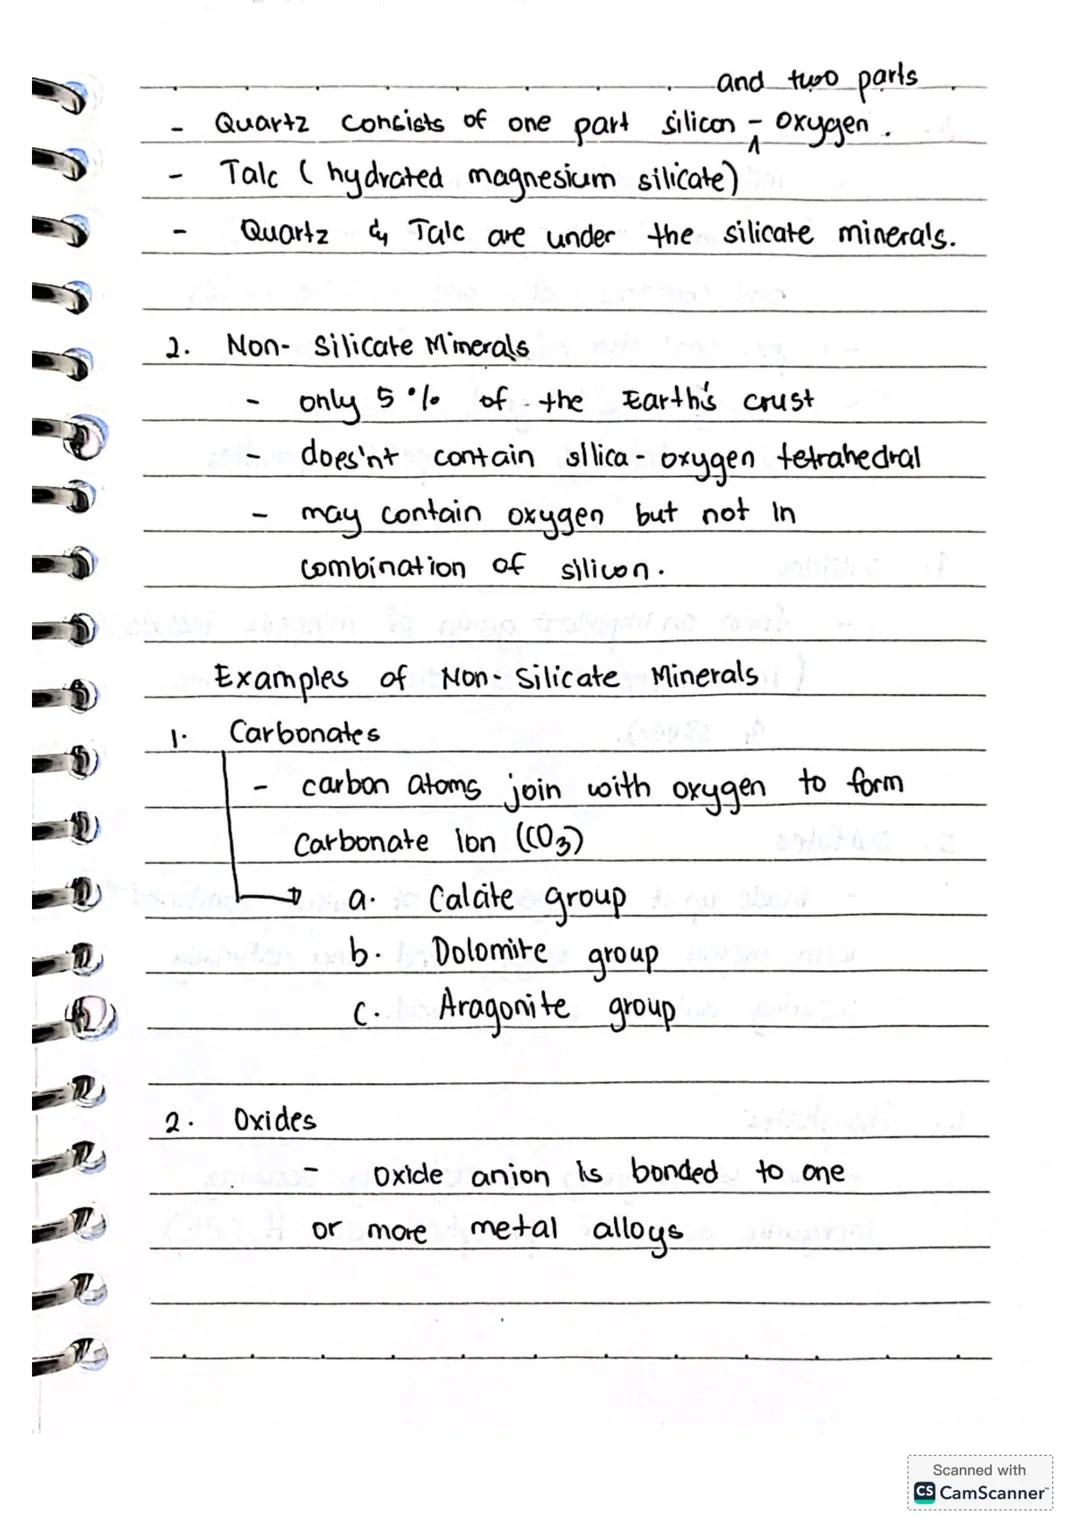 and two parts
- Quartz consists of one part silicon - oxygen.
- Talc (hydrated magnesium silicate)
- Quartz & Talc are under the silicate minerals.
2. Non-Silicate Minerals
- only 5% of the Earth's crust
- does'nt contain silica-oxygen tetrahedral
- may contain oxygen but not in
combination of silicon.
Examples of Non-Silicate Minerals
1. Carbonates
- carbon atoms join with oxygen to form
Carbonate ion (CO3)
a. Calcite group
b. Dolomite group
c. Aragonite group
2. Oxides
- Oxide anion is bonded to one
or more metal alloys
Scanned with
CS CamScanner